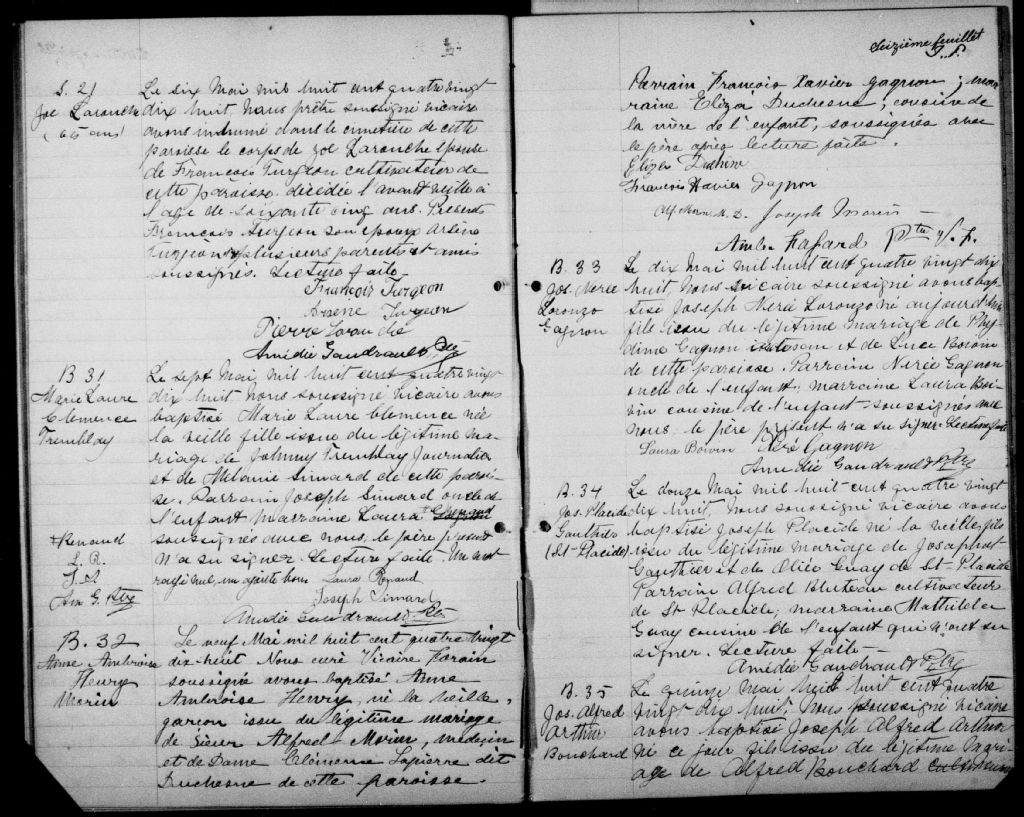 S. 21
Joe Larouche
(65 ans)
Le six Mai mil huit cent quatre vingt
dix huit nous prêtre soussigné vicaire
avons inhumé dans le cimetière de cette
paroisse le corps de Zoé Larouche épouse
de François Turgeon cultivateur de
cette paroisse décédée l'avant veille à
l'âge de soixante cinq ans. Présents
François Turgeon son époux Arsène
Turgeon et plusieurs parents et amis
soussignés. Lecture faite-
François Turgeon
Arsene Turgeon
Pierre Larouche
Amédée Gaudrault Ptre
B 31
Marie Laure
Clemence
Tremblay
Le sept Mai mil huit cent quatre vingt
dix huit nous soussigné vicaire avons
baptisé Marie Laure Clemence née
la veille fille issue du légitime ma-
riage de Johnny Tremblay Journalier
et de Mélanie Simard de cette parois-
se. Parrain Joseph Simard oncle de
l'enfant marraine Laura
soussignés avec nous, le père présent
n'a su signer. Lecture faite. Un mot
rayé nul, un ajouté bon Laura Renaud
Joseph Simard
Amédée Gaudrault Ptre
+Renaud
L. R.
J. S
Am G. Ptre
B. 32
Anne Ambroise
Henry
Morin
Le neuf Mai mil huit cent quatre vingt
dix-huit Nous curé Vicaire Forain
soussigné avons baptisé Anne
Ambroise Henry, né la veille,
garçon issu du légitime mariage
de Sieur Alfred Morin, médecin
et de Dame Clémence Lapierre dit
Duchesne de cette paroisse.
Seizième feuillet
Parrain François Xavier Gagnon; mar
raine Eliza Duchesne, cousine de
la mère de l'enfant, soussignés avec
le père après lecture faite.
Eliza Duchesne
François Xavier Gagnon
Alf Morin M. D. Joseph Morin
Ambr. Fafard Ptre V. F.
B. 33
Jos. Nérée
Lorenzo
Gagnon
Le dix Mai mil huit cent quatre vingt dix
huit, nous vicaire soussigné avons bap
tisé Joseph Nérée Lorenzo né aujourd'hui
fils issu du légitime mariage de Phy
dime Gagnon et de Luce Boivin
de cette paroisse. Parrain Nérée Gagnon
oncle de l'enfant; marraine Laura Boi-
vin cousine de l'enfant soussignés avec
nous. le père présent n'a su signer. Lecture faite
Laura Boivin Néré Gagnon
Amédée Gaudrault Ptre
B. 34
Jos. Placide
Gauthier
(St-Placide)
Le douze Mai mil huit cent quatre vingt
dix huit, nous soussigné vicaire avons
baptisé Joseph Placide né la veille fils
issu du légitime mariage de Josaphat
Gauthier et de Guay de St-Placide
Parrain Alfred Bluteau cultivateur
de St Placide; marraine Mathilde
Guay cousine de l'enfant qui n'ont su
signer. Lecture faite-
Amédée Gaudrault Ptre
B. 35
Jos. Alfred
Arthur
Bouchard
Le quinze Mai mil huit cent quatre
vingt dix huit, nous soussigné vicaire
avons baptisé Joseph Alfred Arthur
né ce jour fils issu du légitime mari-
age de Alfred Bouchard